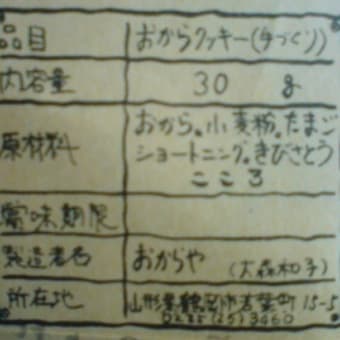 品目 おからクッキー(手づくり)
内容量 30 g
原材料 おから。小麦粉。たまご
ショートニング。きびさとう
こころ
賞味期限
製造者名 おからや (大森和子)
所在地 山形県鶴岡市若葉町 15-5
0235(25)3460